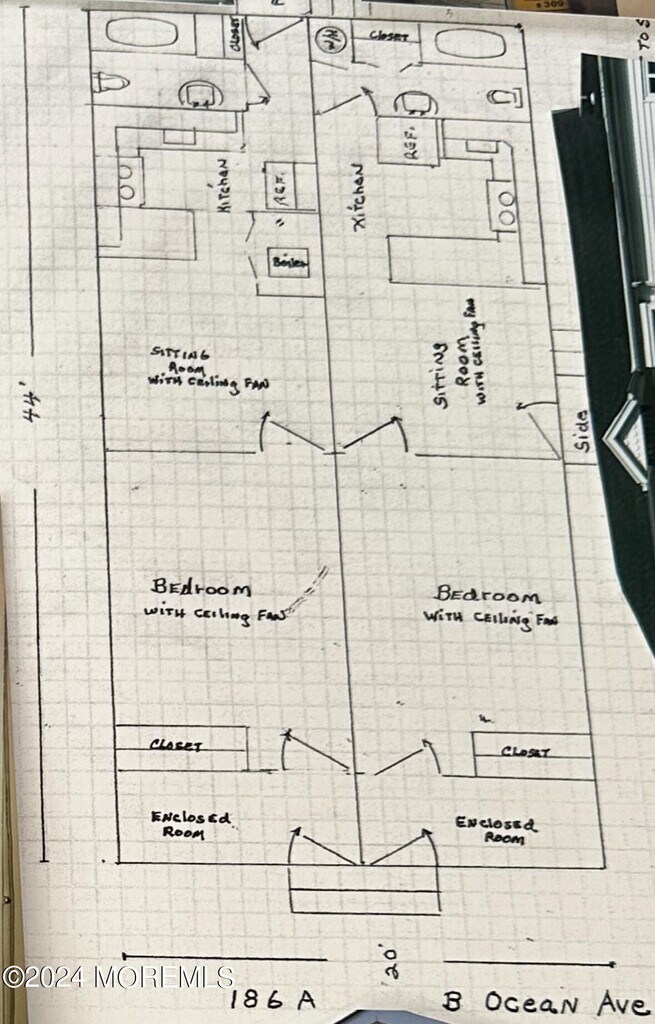 $309
TO S
CLOSET
W/H
CLOSET
Kitchen
REF.
Kitchen
REF.
Boiler
SITTING
Room
WITH CEILING FAN
SITTING
ROOM
WITH CEILING FAN
44'
Side
BEdroom
WITH CEILING FAN
BEdroom
WITH CEILING FAN
CLOSET
CLOSET
ENCLOSED
ROOM
ENCLOSED
ROOM
20'
©2024 MOREMLS
186 A B OCEAN AVE